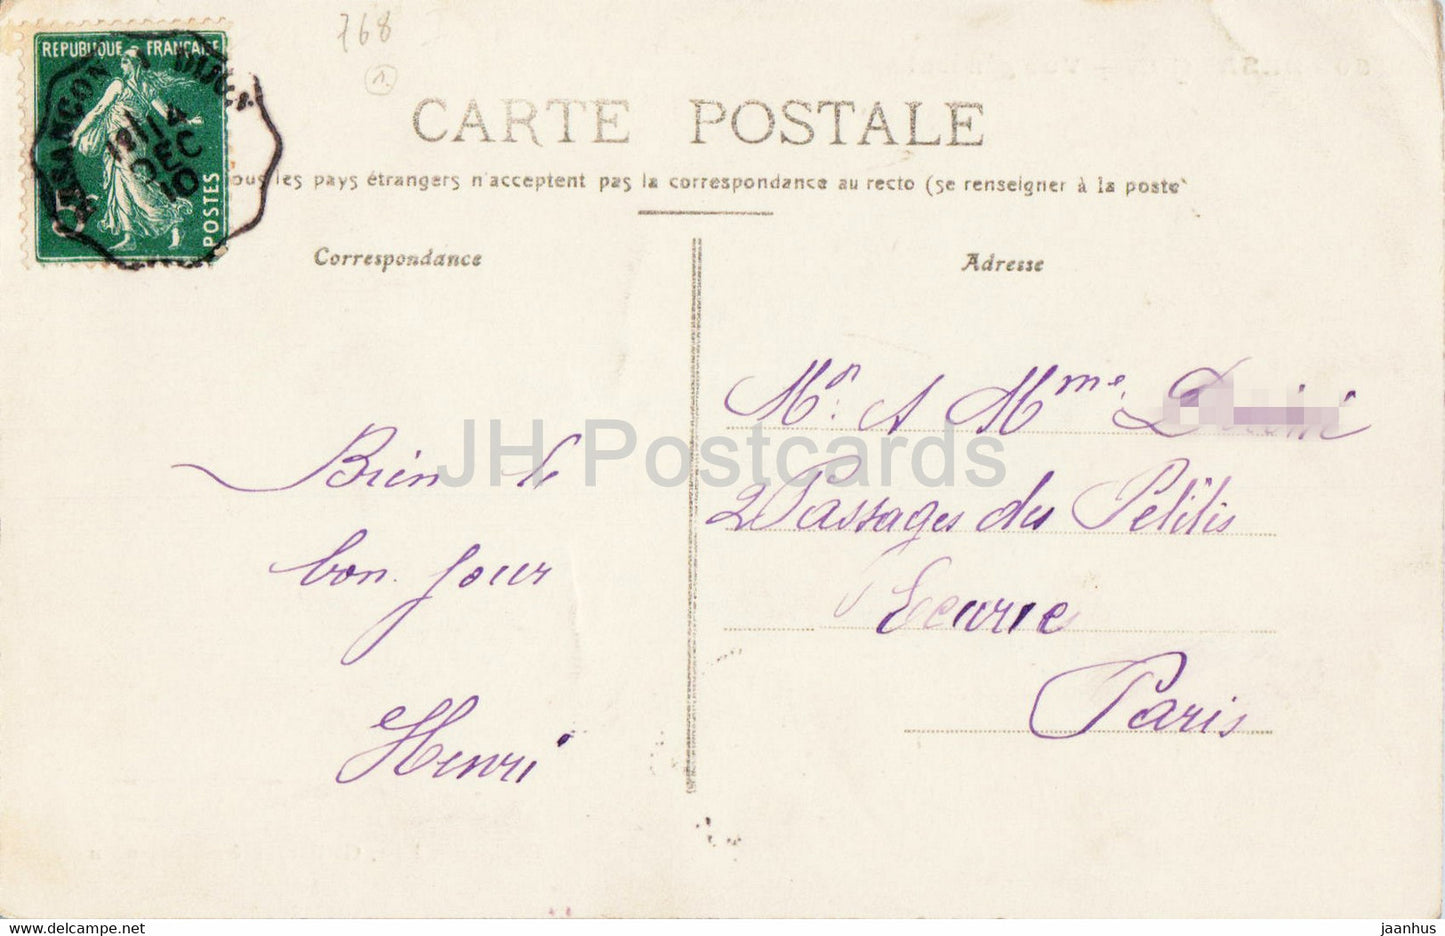 768
1.
REPUBLIQUE FRANÇAISE
POSTES
14
DEC
10
CARTE POSTALE
les pays étrangers n'acceptent pas la correspondance au recto (se renseigner à la poste
Correspondance
Adresse
Bien le
bon jour
Henri
Mr. & Mme.
2 Passages des Petitis
Ecurie
Paris
JH Postcards
www.delcampe.net
jaanhus